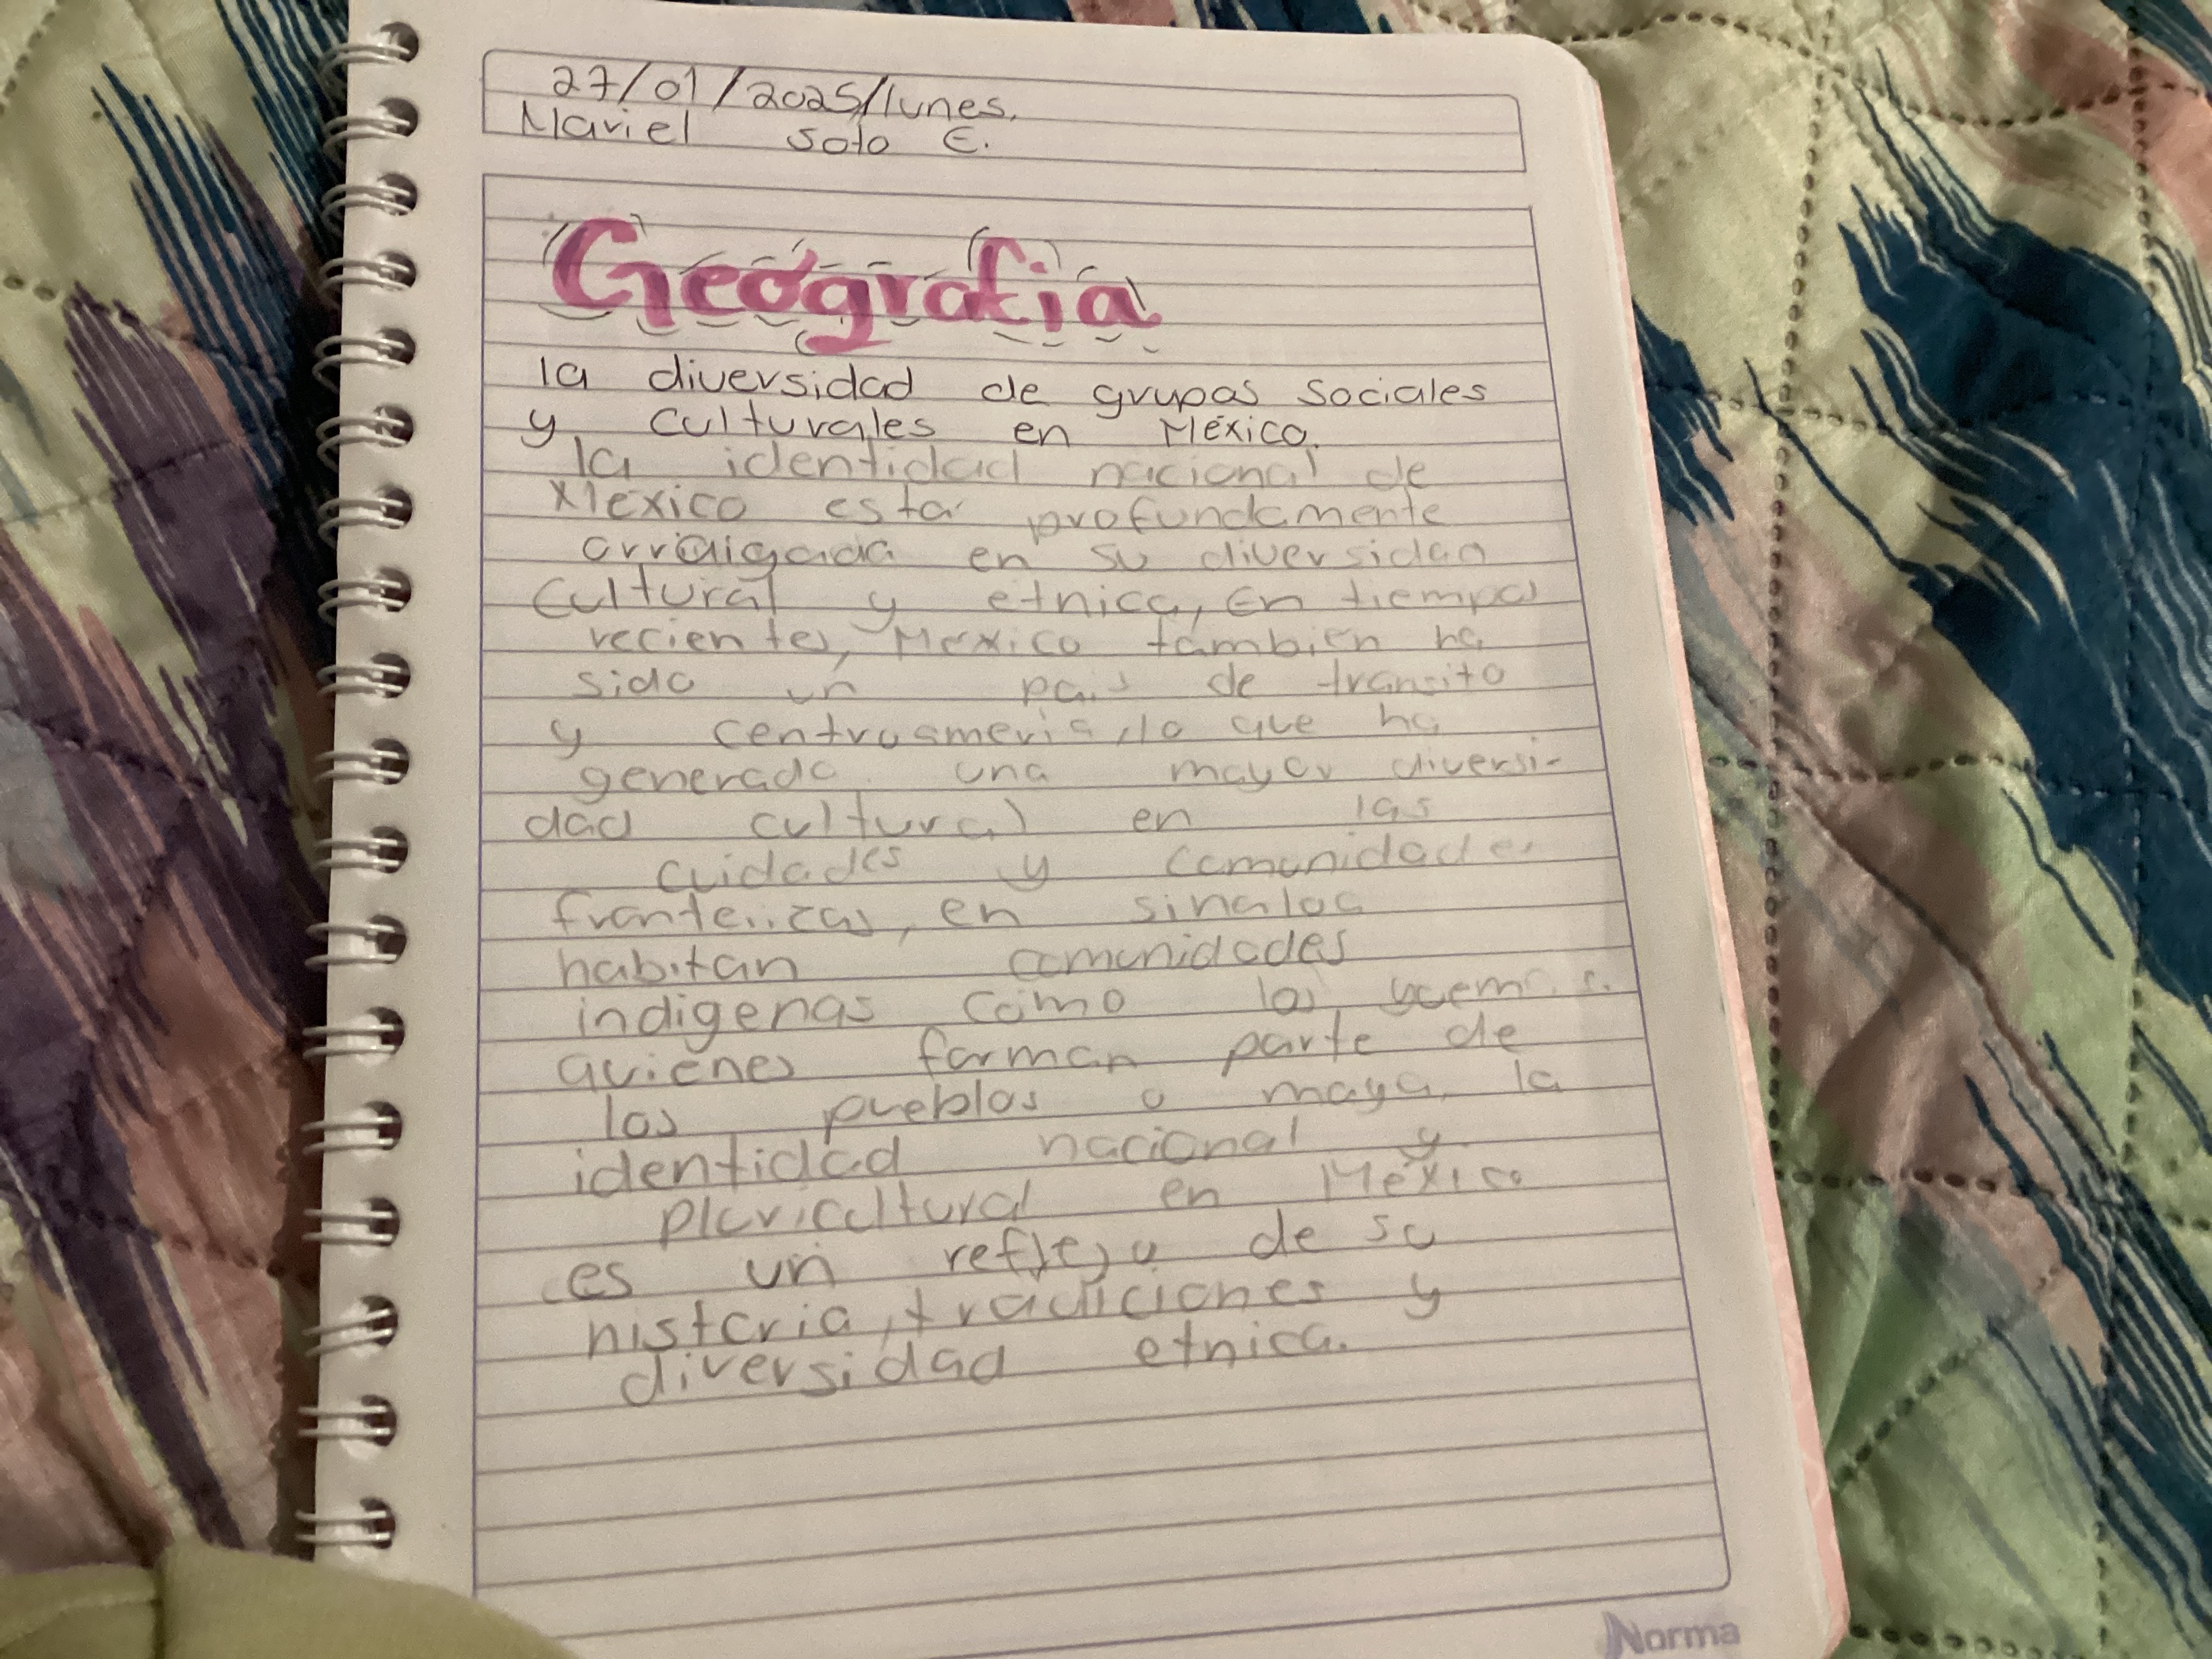 27/01/2025/lunes.
Mariel Soto E.
Geografia
la diversidad de grupos sociales
y culturales en México.
la identidad nacional de
México esta profundamente
arraigada en su diversidad
cultural y etnica, En tiempos
recientes, México tambien ha
sido un pais de transito
y centroameria, lo que ha
generado una mayor diversi-
dad cultural en las
cuidades y comunidades
fronterizas, en sinaloa
habitan comunidades
indigenas como los
quienes forman parte de
los pueblos o maya, la
identidad nacional y
pluricultural en México
es un reflejo de su
historia, tradiciones y
diversidad etnica.
Norma